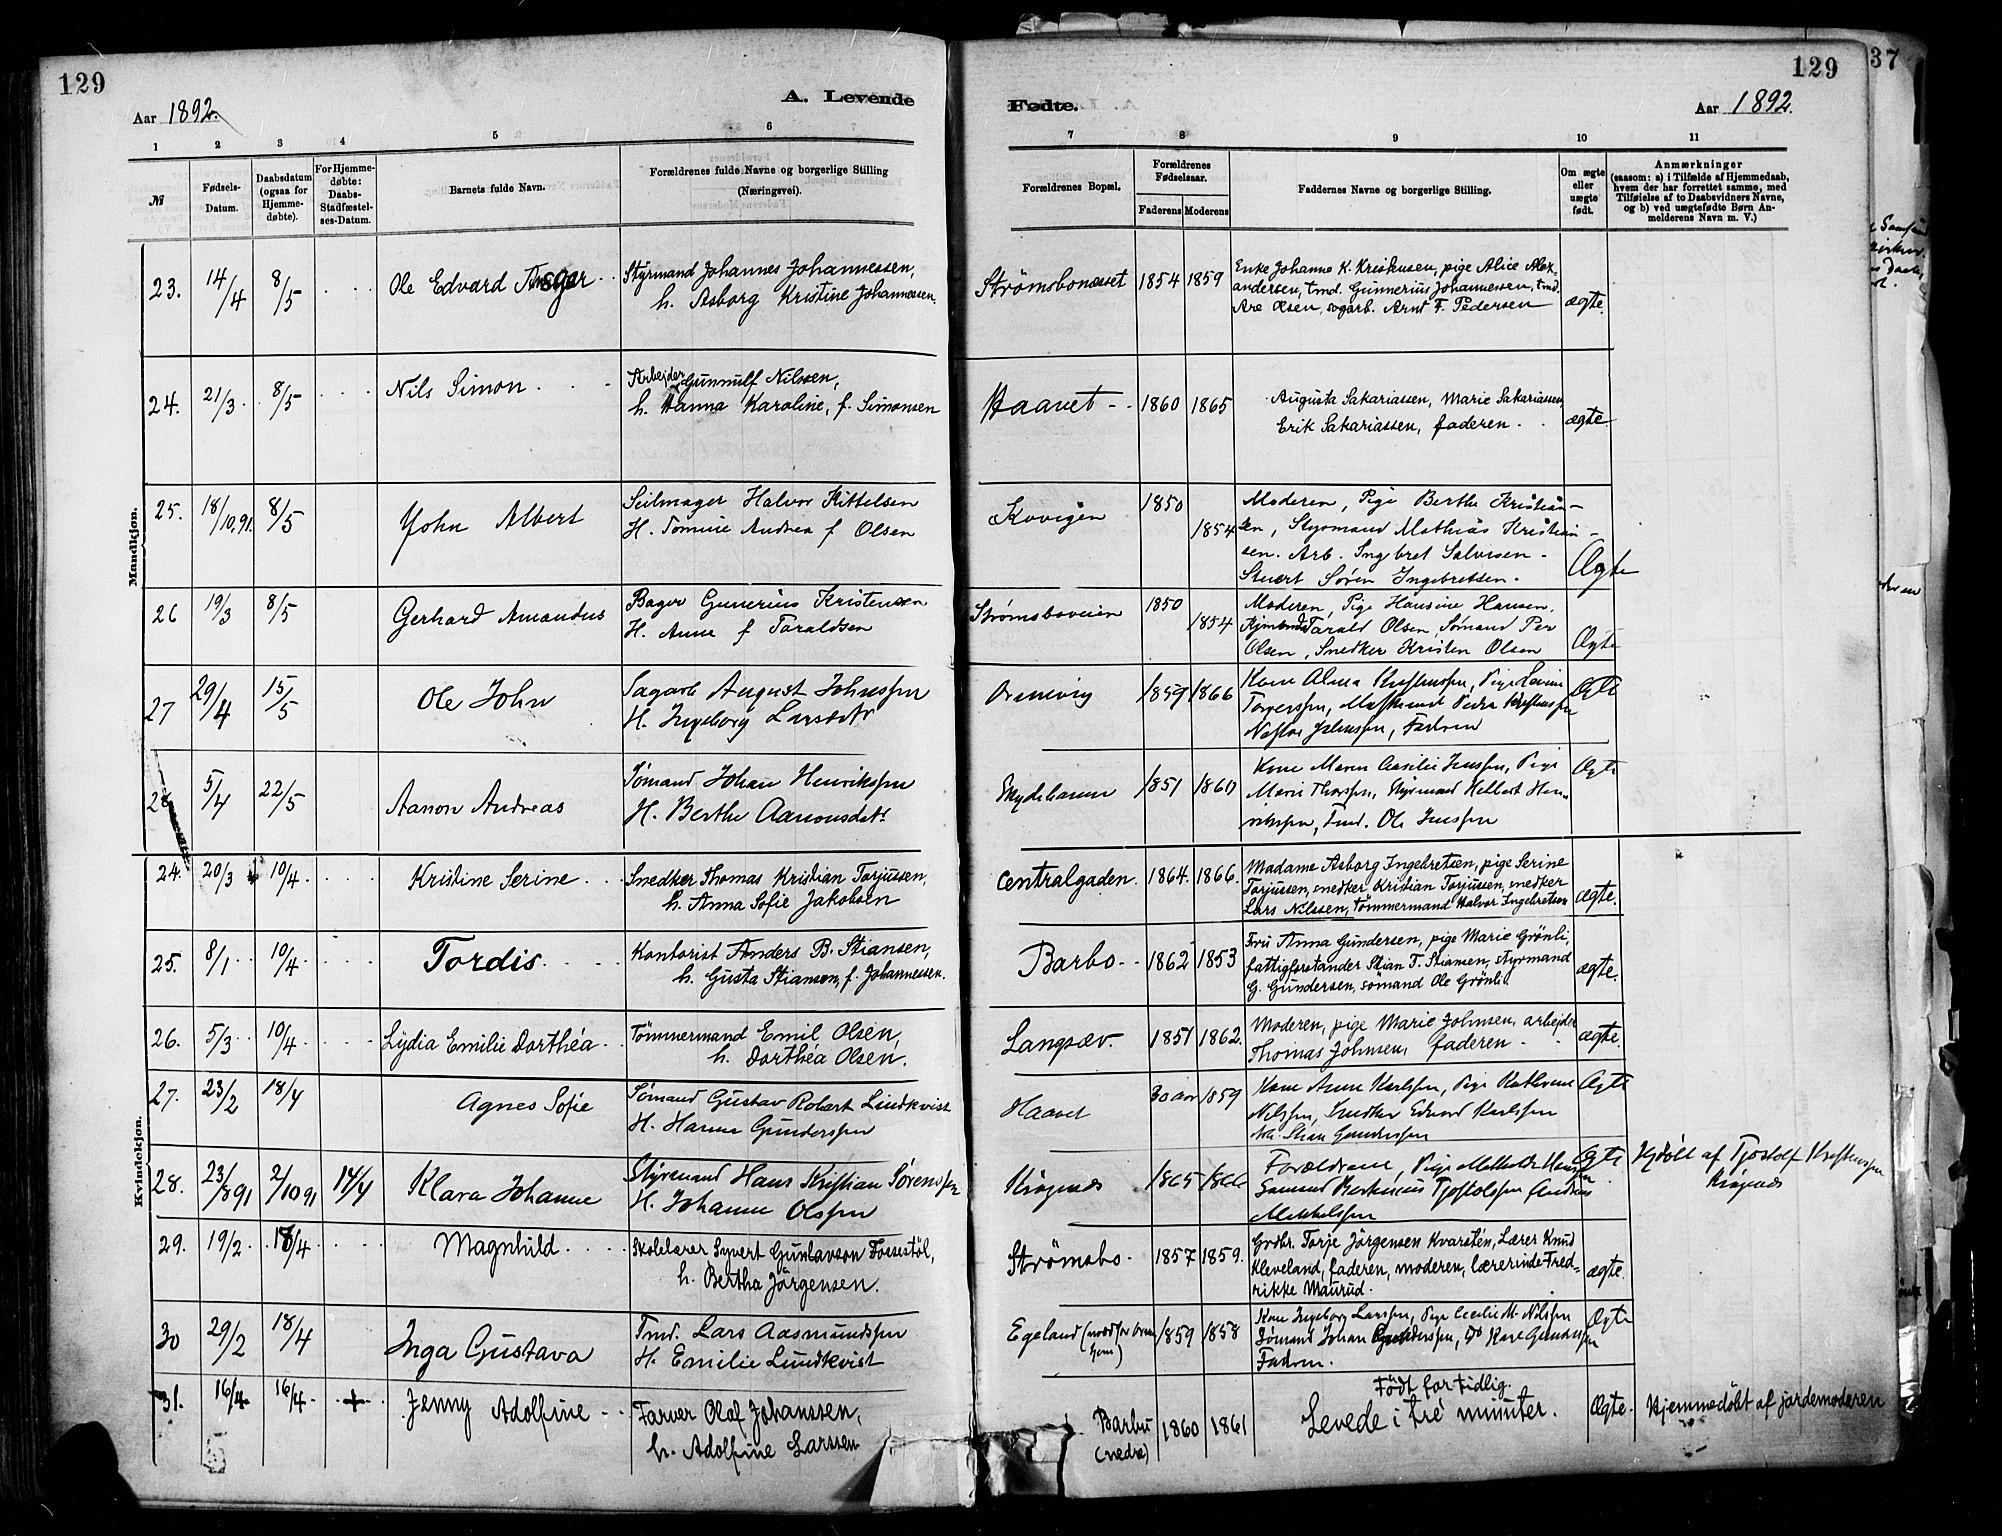 129
129
37
A. Levende
Fødte.
Aar 1892.
Aar 1892.
1 2 3 4 5 6 7 8 9 10 11
№
Fødsels-
Datum.
Daabsdatum
(ogsaa for
Hjemme-
døbte).
For Hjemme-
døbte:
Daabs-
Stadfæstel-
ses-Datum.
Barnets fulde Navn.
Forældrenes fulde Navne og borgerlige Stilling
(Næringsvei).
Forældrenes Bopæl.
Forældrenes
Fødselsaar.
Faderens Moderens
Faddernes Navne og borgerlige Stilling.
Om ægte
eller
uægte
født.
Anmærkninger
(saasom: a) i Tilfælde af Hjemmedaab,
hvem der har forrettet samme, med
Tilføielse af to Daabsvidners Navne,
og b) ved uægtefødte Børn An-
melderens Navn m. V.)
Mandkjøn.
23. 14/4 8/5 Ole Edvard Ansgar
Styrmand Johannes Johannessen,
h. Asborg Kristine Johannessen.
Strømsbonæsset 1854 1859
Enke Johanne K. Kristensen, pige Alice Alex-
andersen, tmd. Gunnerius Johannessen, tmd.
Are Olsen, sagarb. Arnt F. Pedersen
ægte.
24. 21/3 8/5 Nils Simon
Arbejder Gunnulf Nilssen,
h. Hanna Karoline, f. Simonsen
Haavet 1860 1865
Augusta Sakariassen, Marie Sakariassen,
Erik Sakariassen, faderen.
ægte
25. 18/10.91. 8/5 John Albert
Seilmager Halvor Kittelsen
H. Tomine Andrea f Olsen
Kovigen 1850 1854
Moderen, Pige Berthe Kristian-
sen, Styrmand Mathias Kristian-
sen. Arb. Ingebret Salvesen -
Stuert Søren Ingebretsen.
Ægte
26 19/3 8/5 Gerhard Amandus
Bager Gunerius Kristensen
H. Anne f Taraldsen
Strømsboveien 1850 1854
Moderen, Pige Hansine Hansen,
Tarald Olsen, Sømand Per
Olsen, Snedker Kristen Olsen
Ægte
27 29/4 15/5 Ole John
Sagarb August Johnssen
H. Ingeborg Larsdtr
1859 1866
Kone Alma
Fadren
Ægte
28 5/4 22/5 Aanon Andreas
Sømand Johan Henrikssen
H. Berthe Aanonsdtr
Eydehavn 1851 1860
Kone Maren Jenssen, Pige
Marie Styrmand Hen-
rikssen, Tmd. Ole Jenssen
Ægte
Kvindekjøn.
24. 20/3 10/4. Kristine Serine
Snedker Thomas Kristian Torjussen,
h. Anna Sofie Jakobsen
Centralgaden. 1864. 1866.
Madame Asborg Ingebretsen, pige Serine
Torjussen, snedker Kristian Torjussen, snedker
Lars Nilssen, Tømmermand Halvor Ingebretsen
ægte.
25. 8/1 10/4 Tordis.
Kontorist Anders B. Stiansen,
h. Gusta Stiansen, f. Johannessen.
Barbo 1862 1853
Fru Anna Gundersen, pige Marie Grönli,
fattigforstander Stian T. Stiansen, styrmand
G. Gundersen, sömand Ole Grönli.
ægte.
26. 5/3 10/4 Lydia Emilie Dorthéa
Tömmermand Emil Olsen,
h. Dorthéa Olsen.
Langsæv. 1851 1862.
Moderen, pige Marie Johnsen, arbejder
Thomas Johnsen, faderen
ægte.
27. 23/2 18/4 Agnes Sofie
Sømand Gustav Robert Lindkvist
H. Hanna Gunderssen
Haavet 30 aar 1859
Kone Anne Karlssen, Pige Kathrine
Nilssen, Snedker Edvard Karlssen
Stian Gunderssen
Ægte
28. 23/8 91 2/10 91 17/4 Klara Johanne
Styrmand Hans Kristian Sørenssen
H. Johanne Olssen
Krøgenæs 1865 1866
Forældrene, Pige
Sømand Tjostolfssen Andreas
Mikkelssen
Ægte
Hjdöbt af Tjostolf Kristenssen
Krøgenæs
29. 19/2 18/4 Magnhild
Skolelærer Syvert Gunlavson Fossestöl,
h. Bertha Jörgensen.
Strømsbo. 1857 1859.
Grdbr. Torje Jörgensen Kvarsten, Lærer Knud
Kleveland, faderen, moderen, lærerinde Fred-
rikke Maurud.
ægte.
30 29/2 18/4 Inga Gustava
Tmd. Lars Aasmundssen
H. Emilie Lundkvist
Egeland 1859 1858
Kone Ingeborg Larssen, Pige Cecilie M. Nilssen
Sømand Johan Gunderssen, Do Karl Gunderssen
Fadren.
Ægte
31. 16/4. 16/4. + Jenny Adolfine
Farver Olaf Johanssen,
h. Adolfine Larssen
Barbu
(nedre) 1860 1861
Födt for tidlig.
Levede i tre minuter.
Ægte.
Hjemmedöbt af jordemoderen